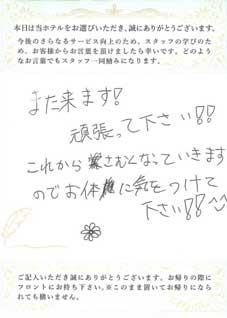 本日は当ホテルをお選びいただき、誠にありがとうございます。
今後のさらなるサービス向上のため、スタッフの学びのため、お客様からお言葉を頂けましたら幸いです。どのようなお言葉でもスタッフ一同励みになります。
また来ます!
頑張って下さい!!
これから寒さむくなっていきます
のでお体に気をつけて
下さい!!^^
ご記入いただき誠にありがとうございます。お帰りの際に
フロントにお持ち下さい。※このまま置いてお帰りになら
れても構いません。